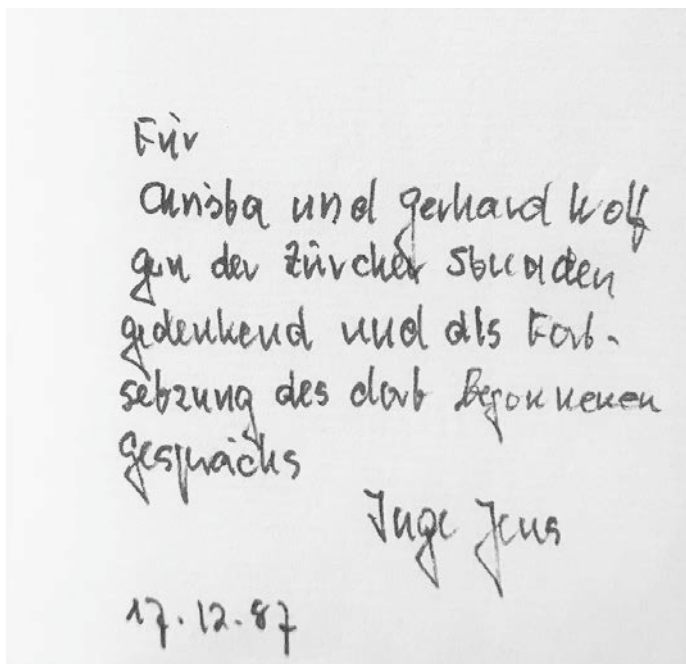 Für
Christa und Gerhard Wolf
gern der Zürcher Stunden
gedenkend und als Fort-
setzung des dort Begonnenen
Gesprächs
Inge Jens
17.12.87